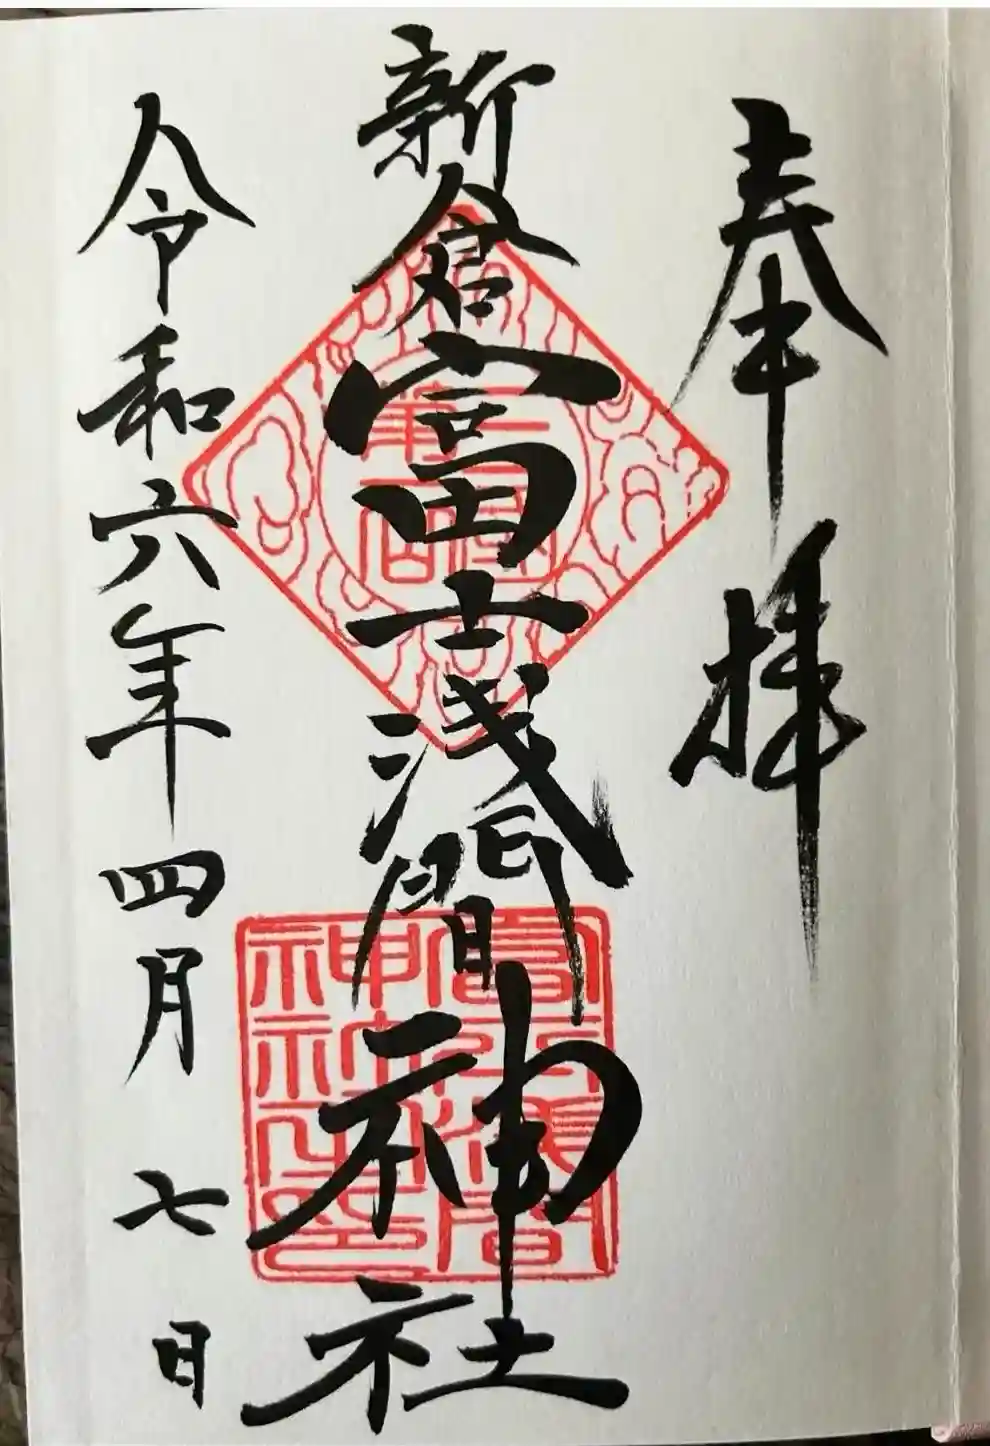 奉拝
新倉富士浅間神社
三國第一山
富士浅間
神社之印
令和六年四月七日